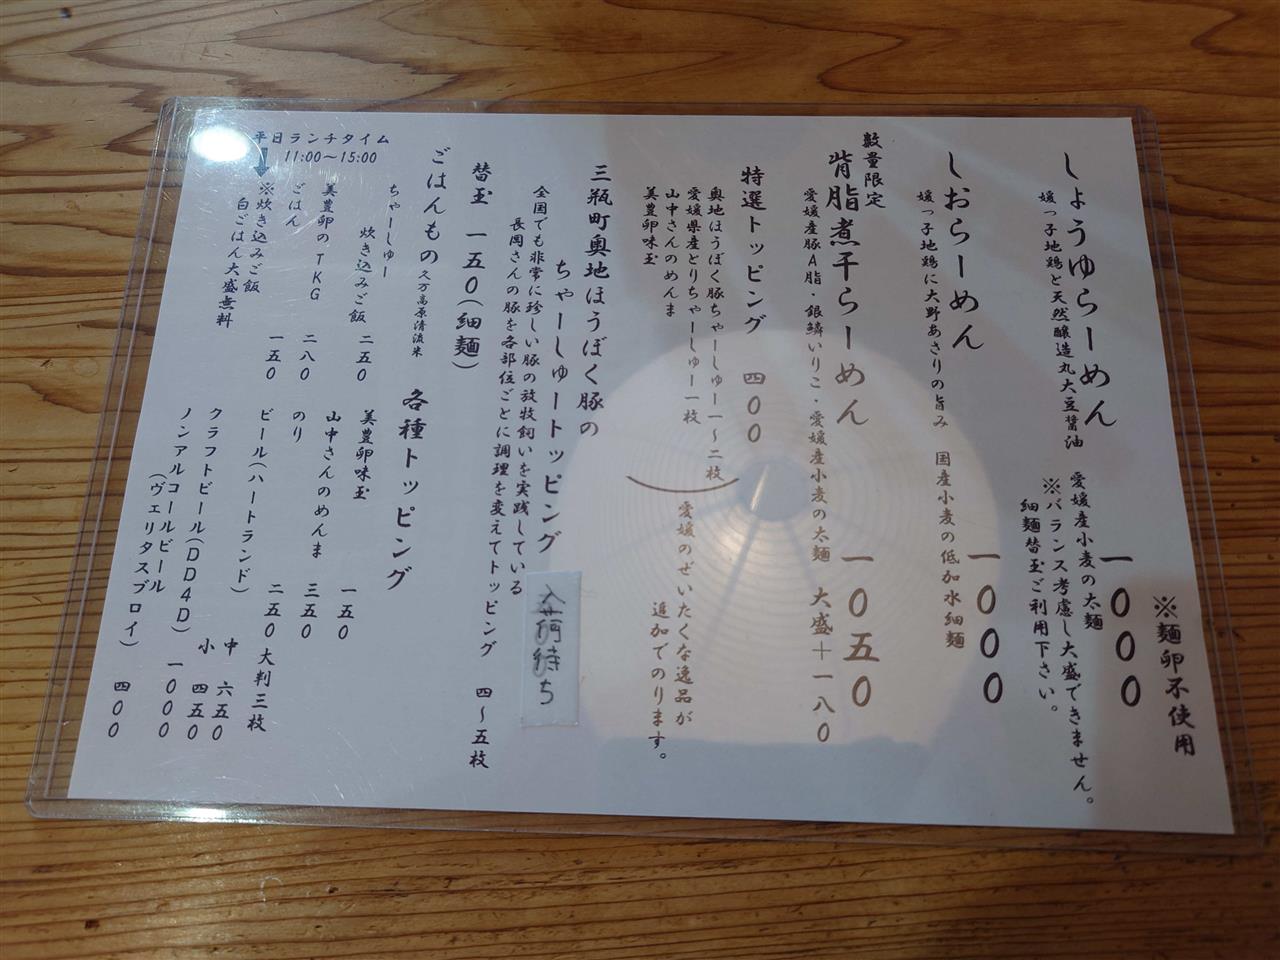 ※麺卵不使用
しょうゆらーめん 一〇〇〇
媛っ子地鶏と天然醸造丸大豆醤油 愛媛産小麦の太麺
※バランス考慮し大盛できません。
細麺替玉ご利用下さい。
しおらーめん 一〇〇〇
媛っ子地鶏に大野あさりの旨み 国産小麦の低加水細麺
数量限定
背脂煮干らーめん 一〇五〇
愛媛産豚A脂・銀鱗いりこ・愛媛産小麦の太麺 大盛+一八〇
特選トッピング 四〇〇
奥地ほうぼく豚ちゃーしゅー一~二枚
愛媛県産とりちゃーしゅー一枚
山中さんのめんま
美豊卵味玉
愛媛のぜいたくな逸品が
追加でのります。
三瓶町奥地ほうぼく豚の
ちゃーしゅートッピング
入荷待ち
全国でも非常に珍しい豚の放牧飼いを実践している
長岡さんの豚を各部位ごとに調理を変えてトッピング 四~五枚
替玉 一五〇(細麺)
ごはんもの 久万高原清流米
ちゃーしゅー
炊き込みご飯 二五〇
美豊卵のTKG 二八〇
ごはん 一五〇
平日ランチタイム
11:00~15:00
※炊き込みご飯
白ごはん大盛無料
各種トッピング
美豊卵味玉 一五〇
山中さんのめんま 三五〇
のり 二五〇大判三枚
ビール(ハートランド) 中 六五〇
小 四五〇
クラフトビール(DD4D) 一〇〇〇
ノンアルコールビール
(ヴェリタスブロイ) 四〇〇